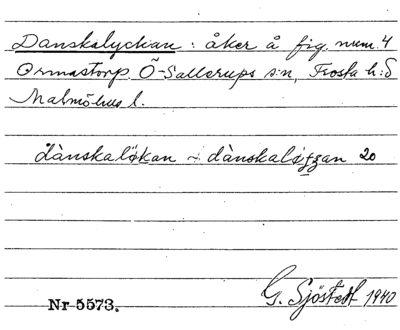 Danskalyckan : åker å fig. num. 4
Ormastorp, Ö-Sallerups s:n, Frosta h:d
Malmöhus l.
dànskalø̀kan ~ dànskalø̀ʒʒan 20
G. Sjöstedt 1940
Nr 5573.